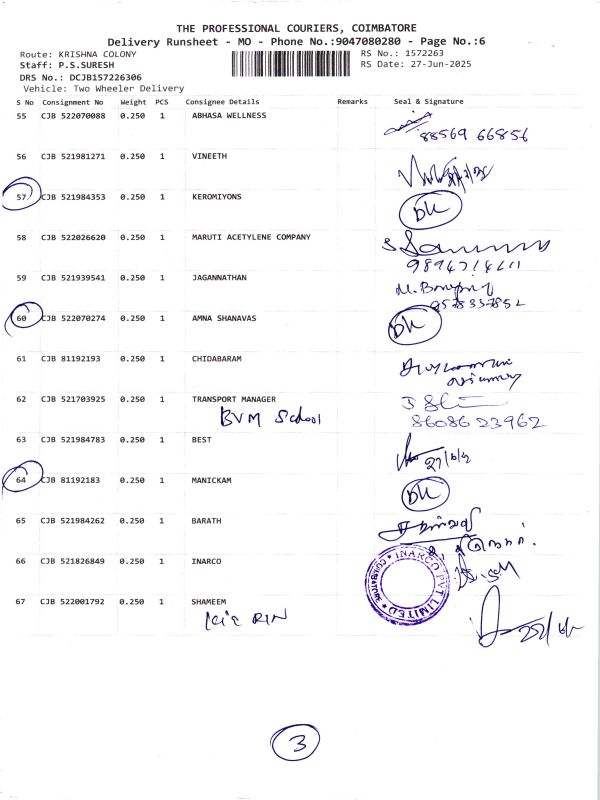 THE PROFESSIONAL COURIERS, COIMBATORE
Delivery Runsheet - MO - Phone No.:9047080280 - Page No.:6
Route: KRISHNA COLONY RS No.: 1572263
Staff: P.S.SURESH RS Date: 27-Jun-2025
DRS No.: DCJB157226306
Vehicle: Two Wheeler Delivery
S No Consignment No Weight PCS Consignee Details Remarks Seal & Signature
55 CJB 522070088 0.250 1 ABHASA WELLNESS
88569 66856
56 CJB 521981271 0.250 1 VINEETH
57 CJB 521984353 0.250 1 KEROMIYONS
DL
58 CJB 522026620 0.250 1 MARUTI ACETYLENE COMPANY
59 CJB 521939541 0.250 1 JAGANNATHAN
60 CJB 522070274 0.250 1 AMNA SHANAVAS
DL
61 CJB 81192193 0.250 1 CHIDABARAM
62 CJB 521703925 0.250 1 TRANSPORT MANAGER
BVM School 8608623962
63 CJB 521984783 0.250 1 BEST
64 CJB 81192183 0.250 1 MANICKAM
DL
65 CJB 521984262 0.250 1 BARATH
66 CJB 521826849 0.250 1 INARCO
INARCO PVT LIMITED
COIMBATORE
67 CJB 522001792 0.250 1 SHAMEEM
3